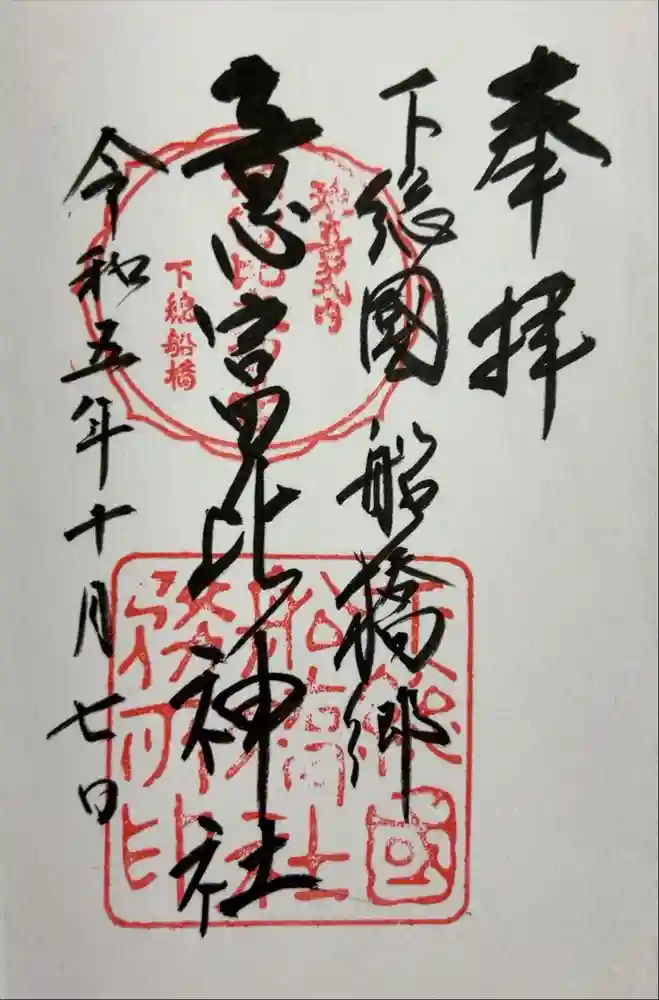 奉拝
下総國 船橋郷
意富比神社
令和五年十月七日
延喜式内
下総船橋
下総國
船橋社
務所印